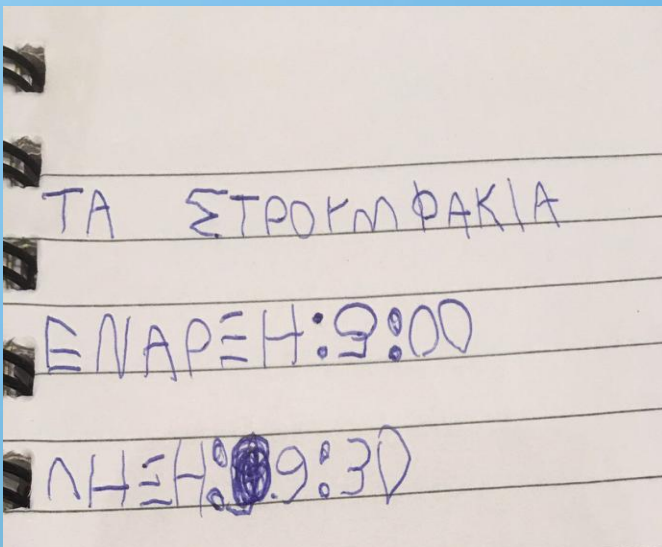 ΤΑ ΣΤΡΟΥΜΦΑΚΙΑ
ΕΝΑΡΞΗ:9:00
ΛΗΞΗ:9:30